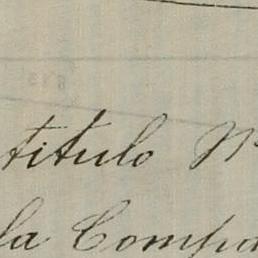 titulo Nº
la Compa